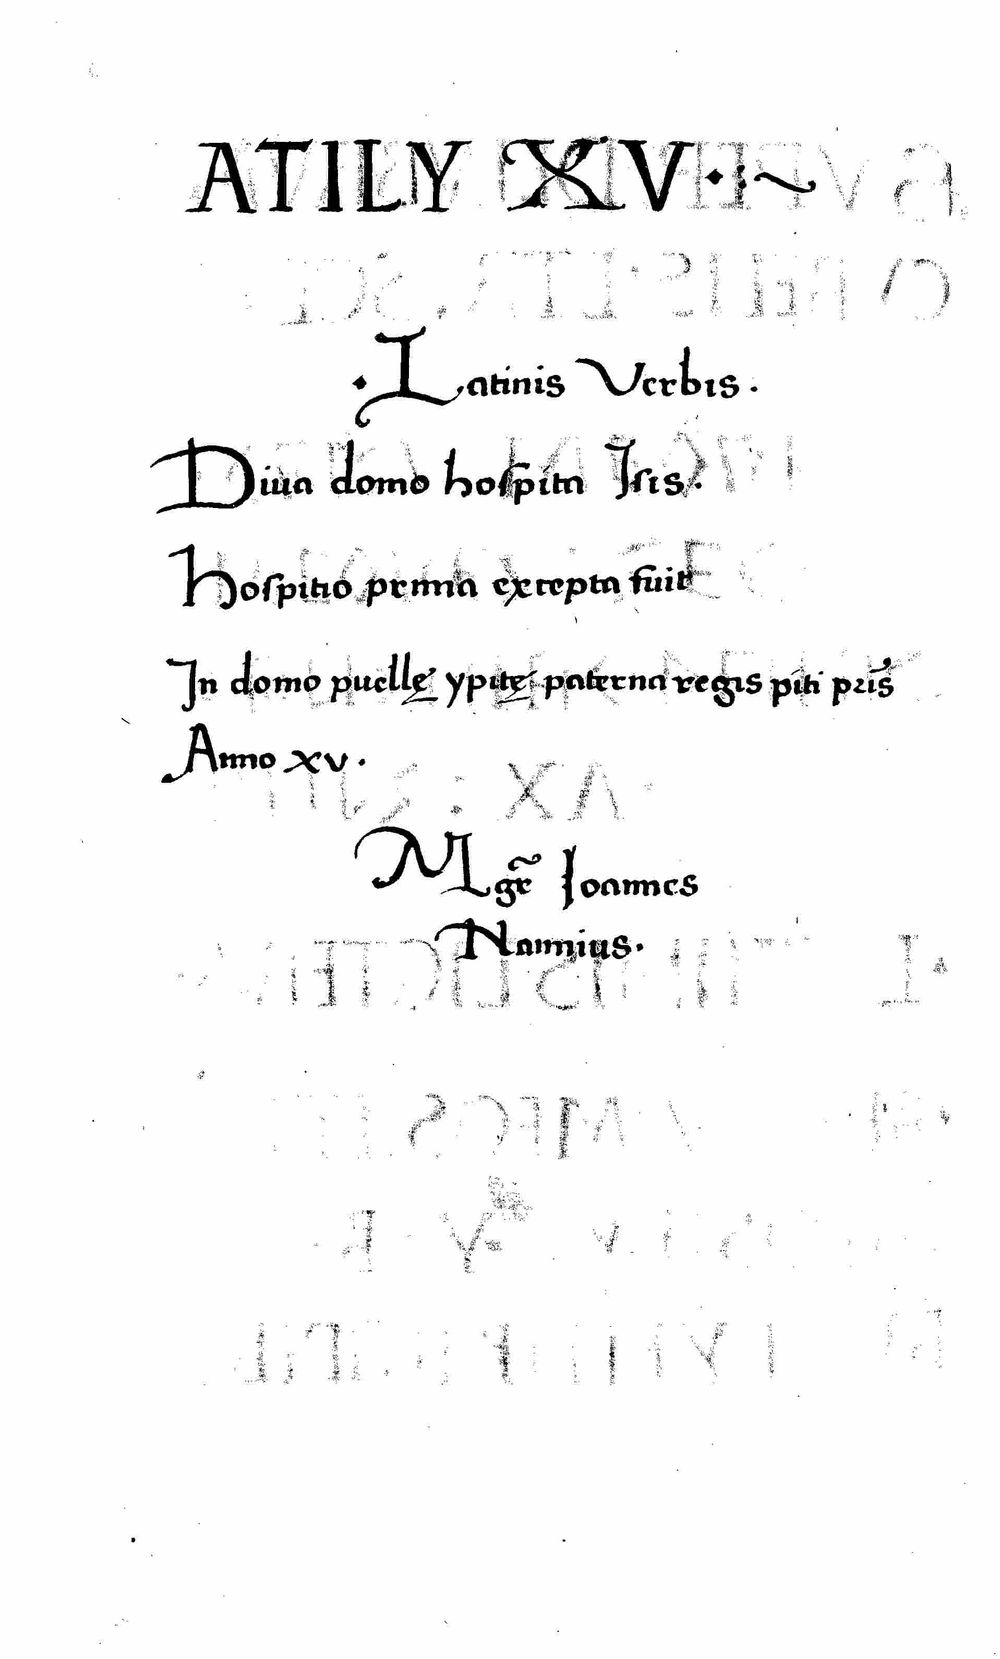 ATILY XV·:~
· Latinis Verbis .
Diua domo hoſpita Iſis .
hoſpitio prima excepta fuit
In domo puellę ypitę paterna regis piti pris
Anno xv .
Mgr Ioannes
Nannius .